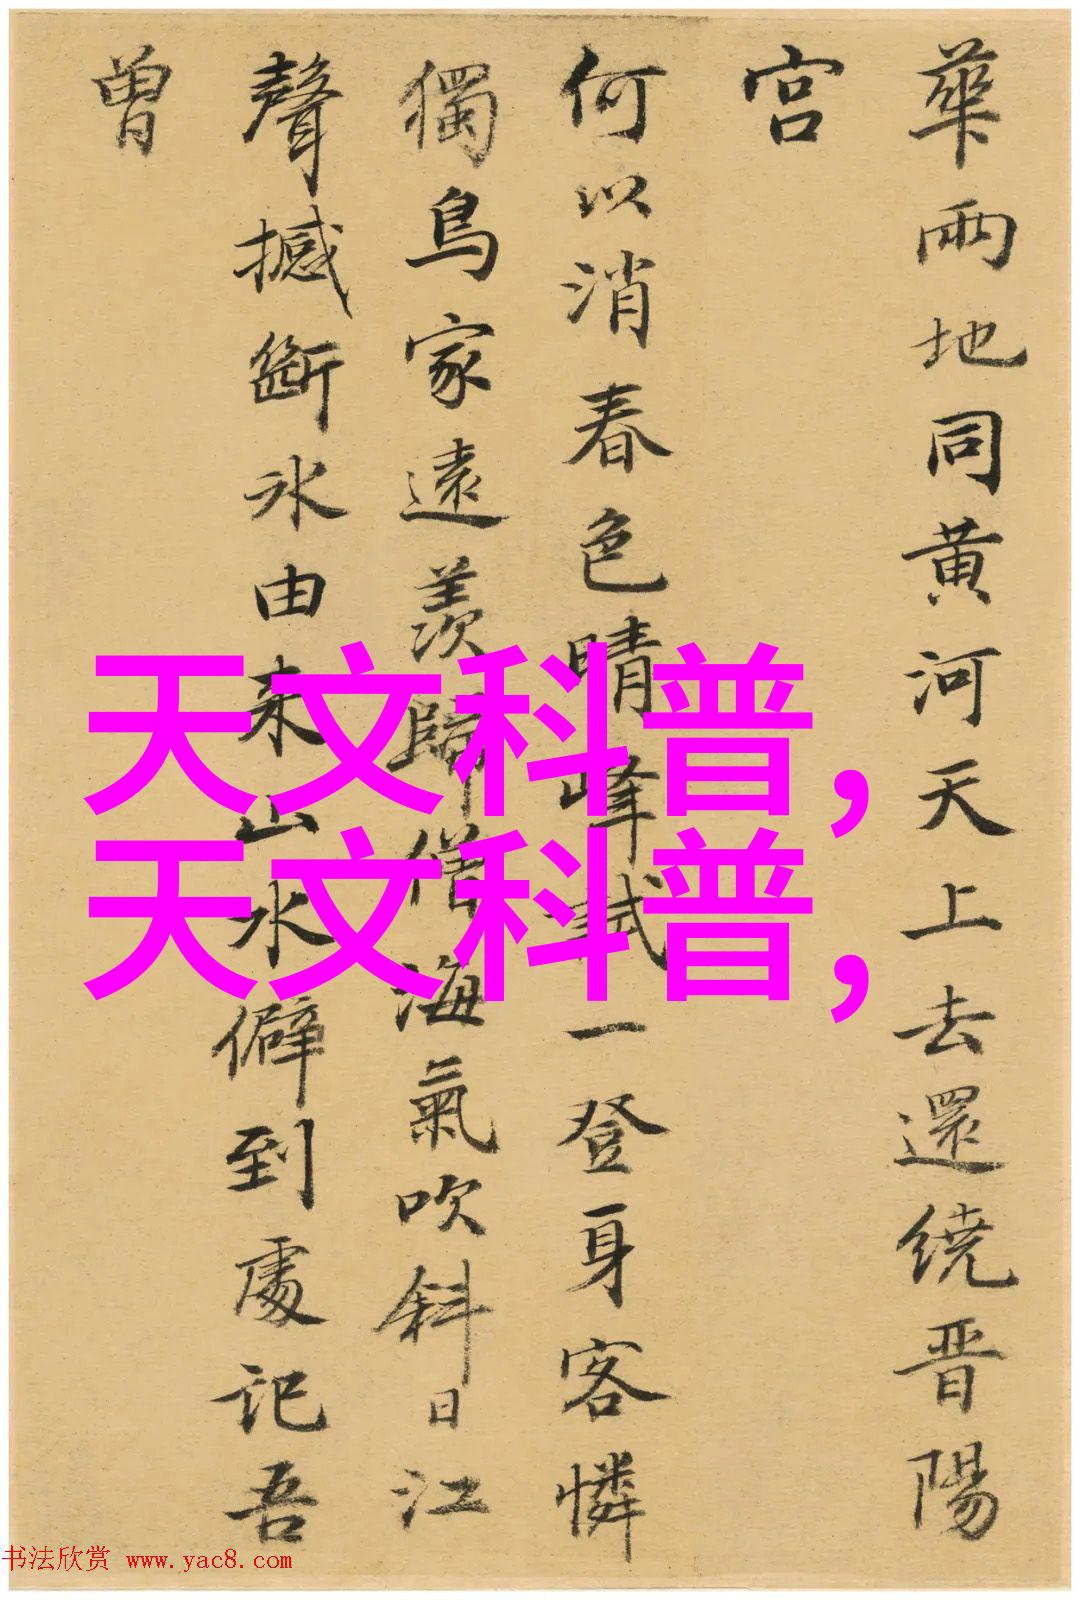 華兩地同黄河天上去還繞晋陽
宫
何以消春色晴峰試一登身客憐
獨鳥家遠羨歸僧海氣吹斜日江
聲撼斷冰由来山水僻到處記吾
曾
天文科普，
天文科普，
书法欣赏 www.yac8.com